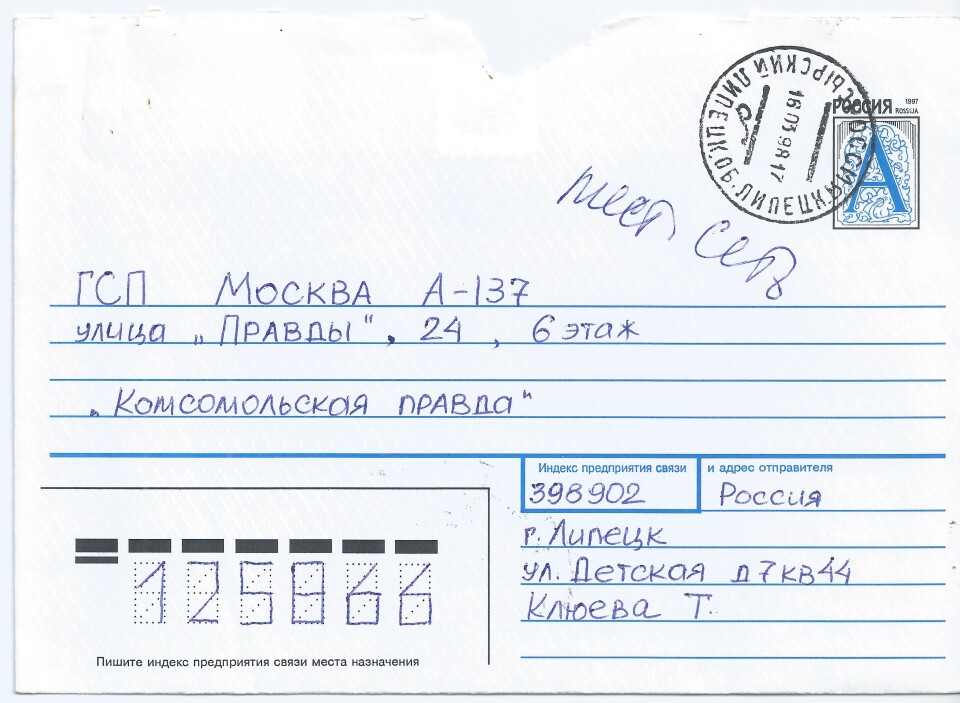 РОССИЯ 1997
ROSSIJA
А
16.03.98 17
ГСП МОСКВА А-137
улица „ПРАВДЫ", 24, 6 этаж
„КОМСОМОЛЬСКАЯ ПРАВДА"
Индекс предприятия связи и адрес отправителя
398902 Россия
г. Липецк
ул. Детская д 7 кв 44
Клюева Т.
125866
Пишите индекс предприятия связи места назначения